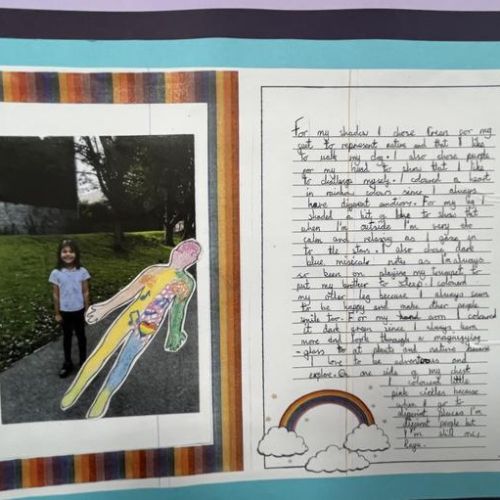 For my shadow I chose Green for my
feet to represent nature and that I like
to walk my dog. I also chose purple
for my head to show that I like
to challenge myself. I coloured a heart
in rainbow colours since I always
have different emotions. For my leg I
shaded a bit of blue to show that
when I'm outside I'm very
calm and relaxing as I gaze up
to the stars. I also chose dark
blue notes as I'm always
so been on playing my trumpet to
put my brother to sleep. I coloured
my other leg because I always seem
to be happy and make other people
smile too. For my hand arm I coloured
it dark green since I always learn
more and look through a magnifying
-glass to at plants and nature because
I love to be and
explore. On one side of my chest
I coloured little
pink circles because
when I go to
different places I'm
different people but
I'm still me,